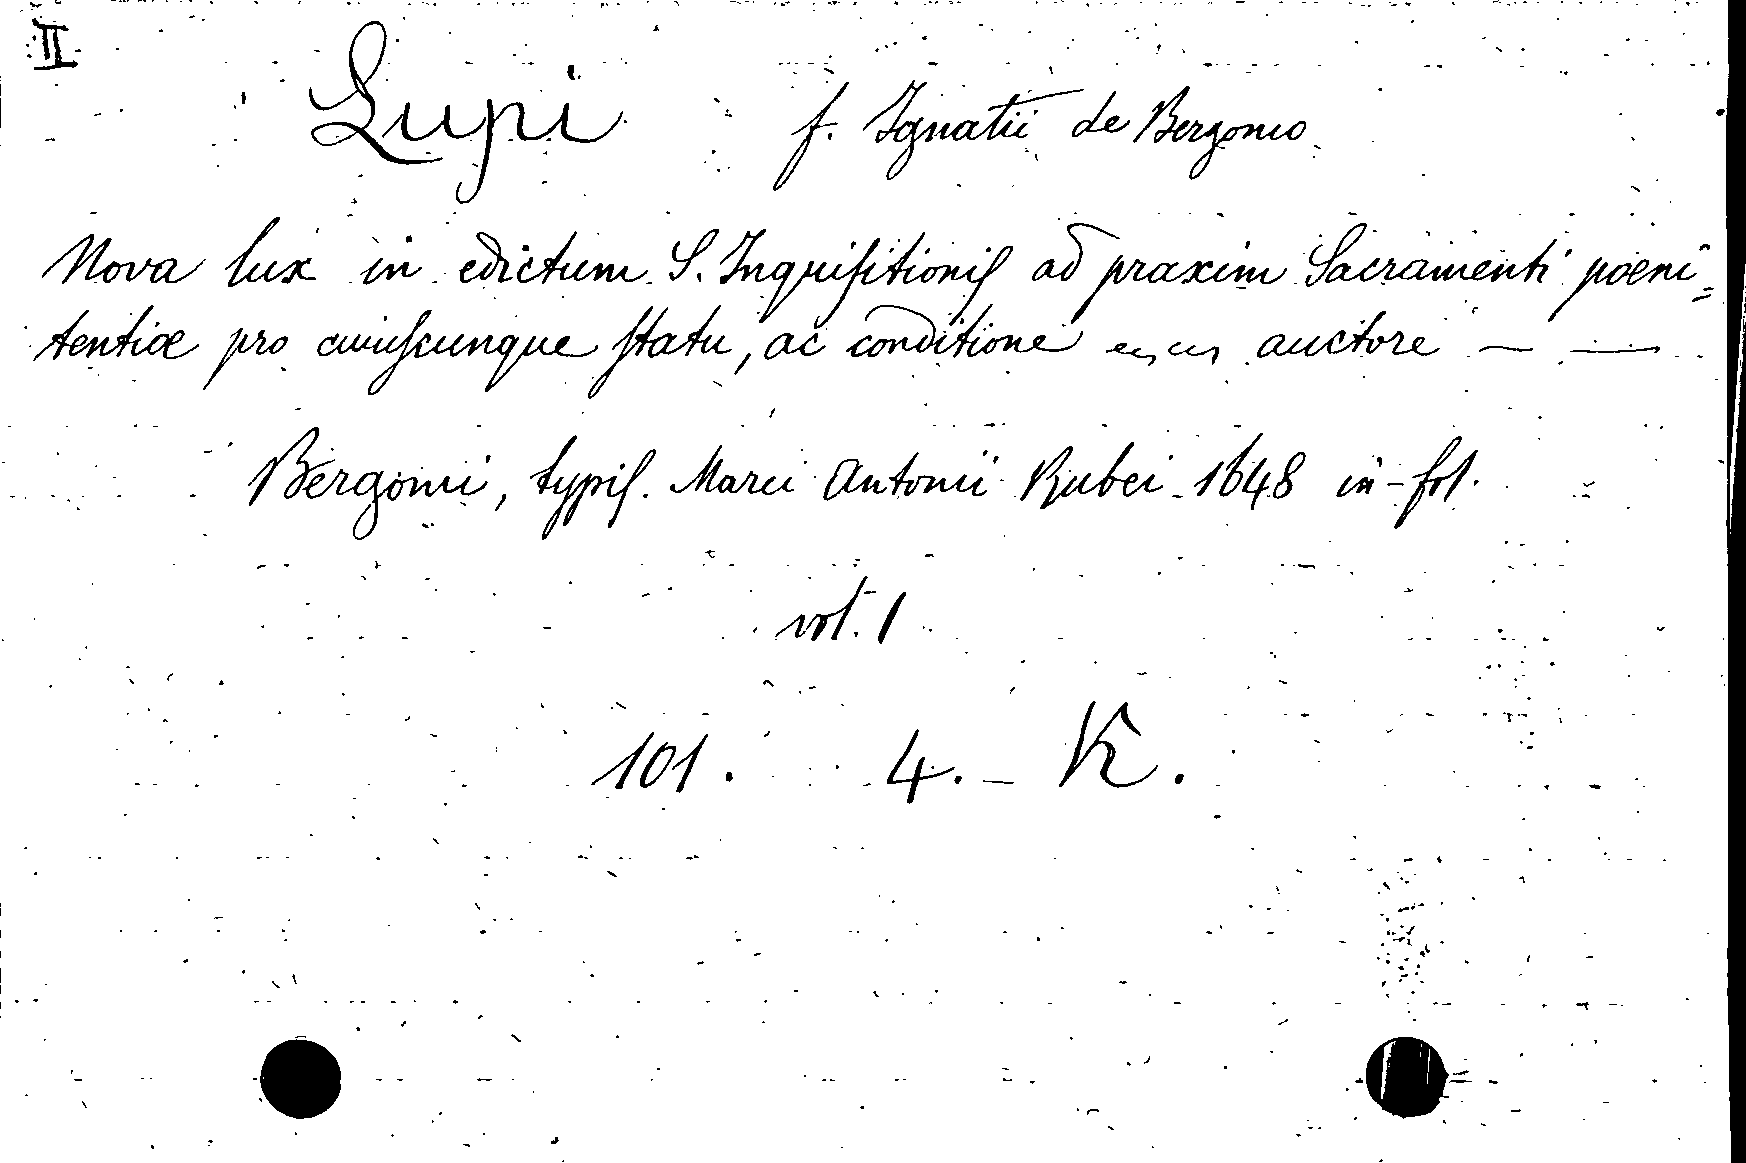 II
Lupi f. Ignatii de Bergomo
Nova lux in edictum S. Inquiſitioniſ ad praxim Sacramenti poeni=
tentiæ pro cuiuſcunque ſtatu, ac conditione auctore — —
Bergomi, typiſ. Marci Antonii Rubei 1648 in-fol.
vol. 1
101. 4. - K.